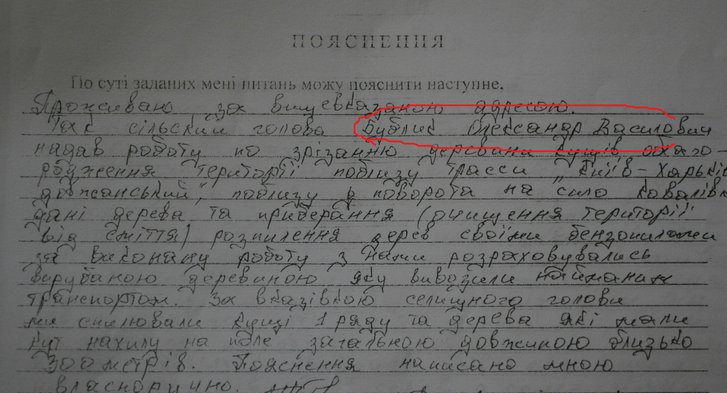 ПОЯСНЕННЯ
По суті заданих мені питань можу пояснити наступне.
Проживаю за вищевказаною адресою.
Так сільский голова Бублик Олександр Василович
надав роботу по зрізанню деревини кущів
території поблизу трасси „Київ-Харьків
довжанський", поблизу поворота на сило Ковалівка
дані дерева та приберання (очищення території
від сміття) розпилення дерев своїми бензопилами
за виконану роботу з нами розраховувались
вирубаною деревиною яку вивозили найманим
транспортом. За вказівкою селищного голови
ми спилювали кущі 1 ряду та дерева які мали
кут нахилу на поле загальною довжиною близько
300 метрів. Пояснення написано мною
власноручно.